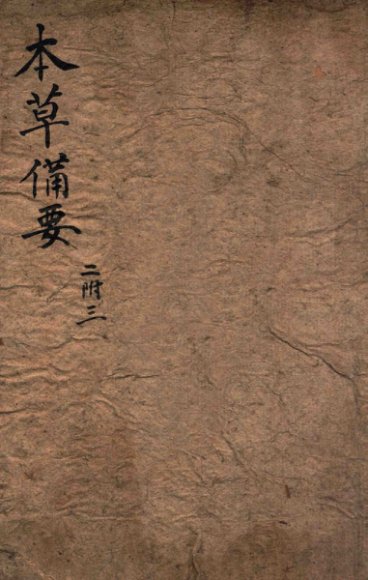 本草備要
二附三